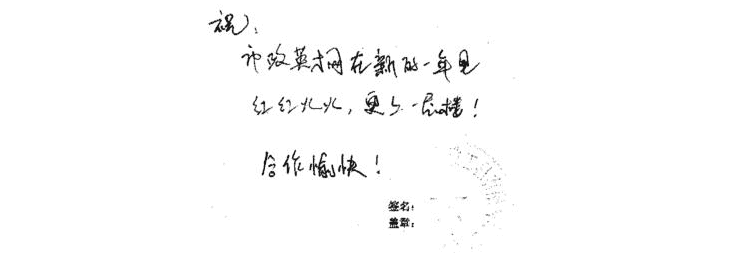 祝：
市政英才网在新的一年里
红红火火，更上一层楼！
合作愉快！
签名：
盖章：